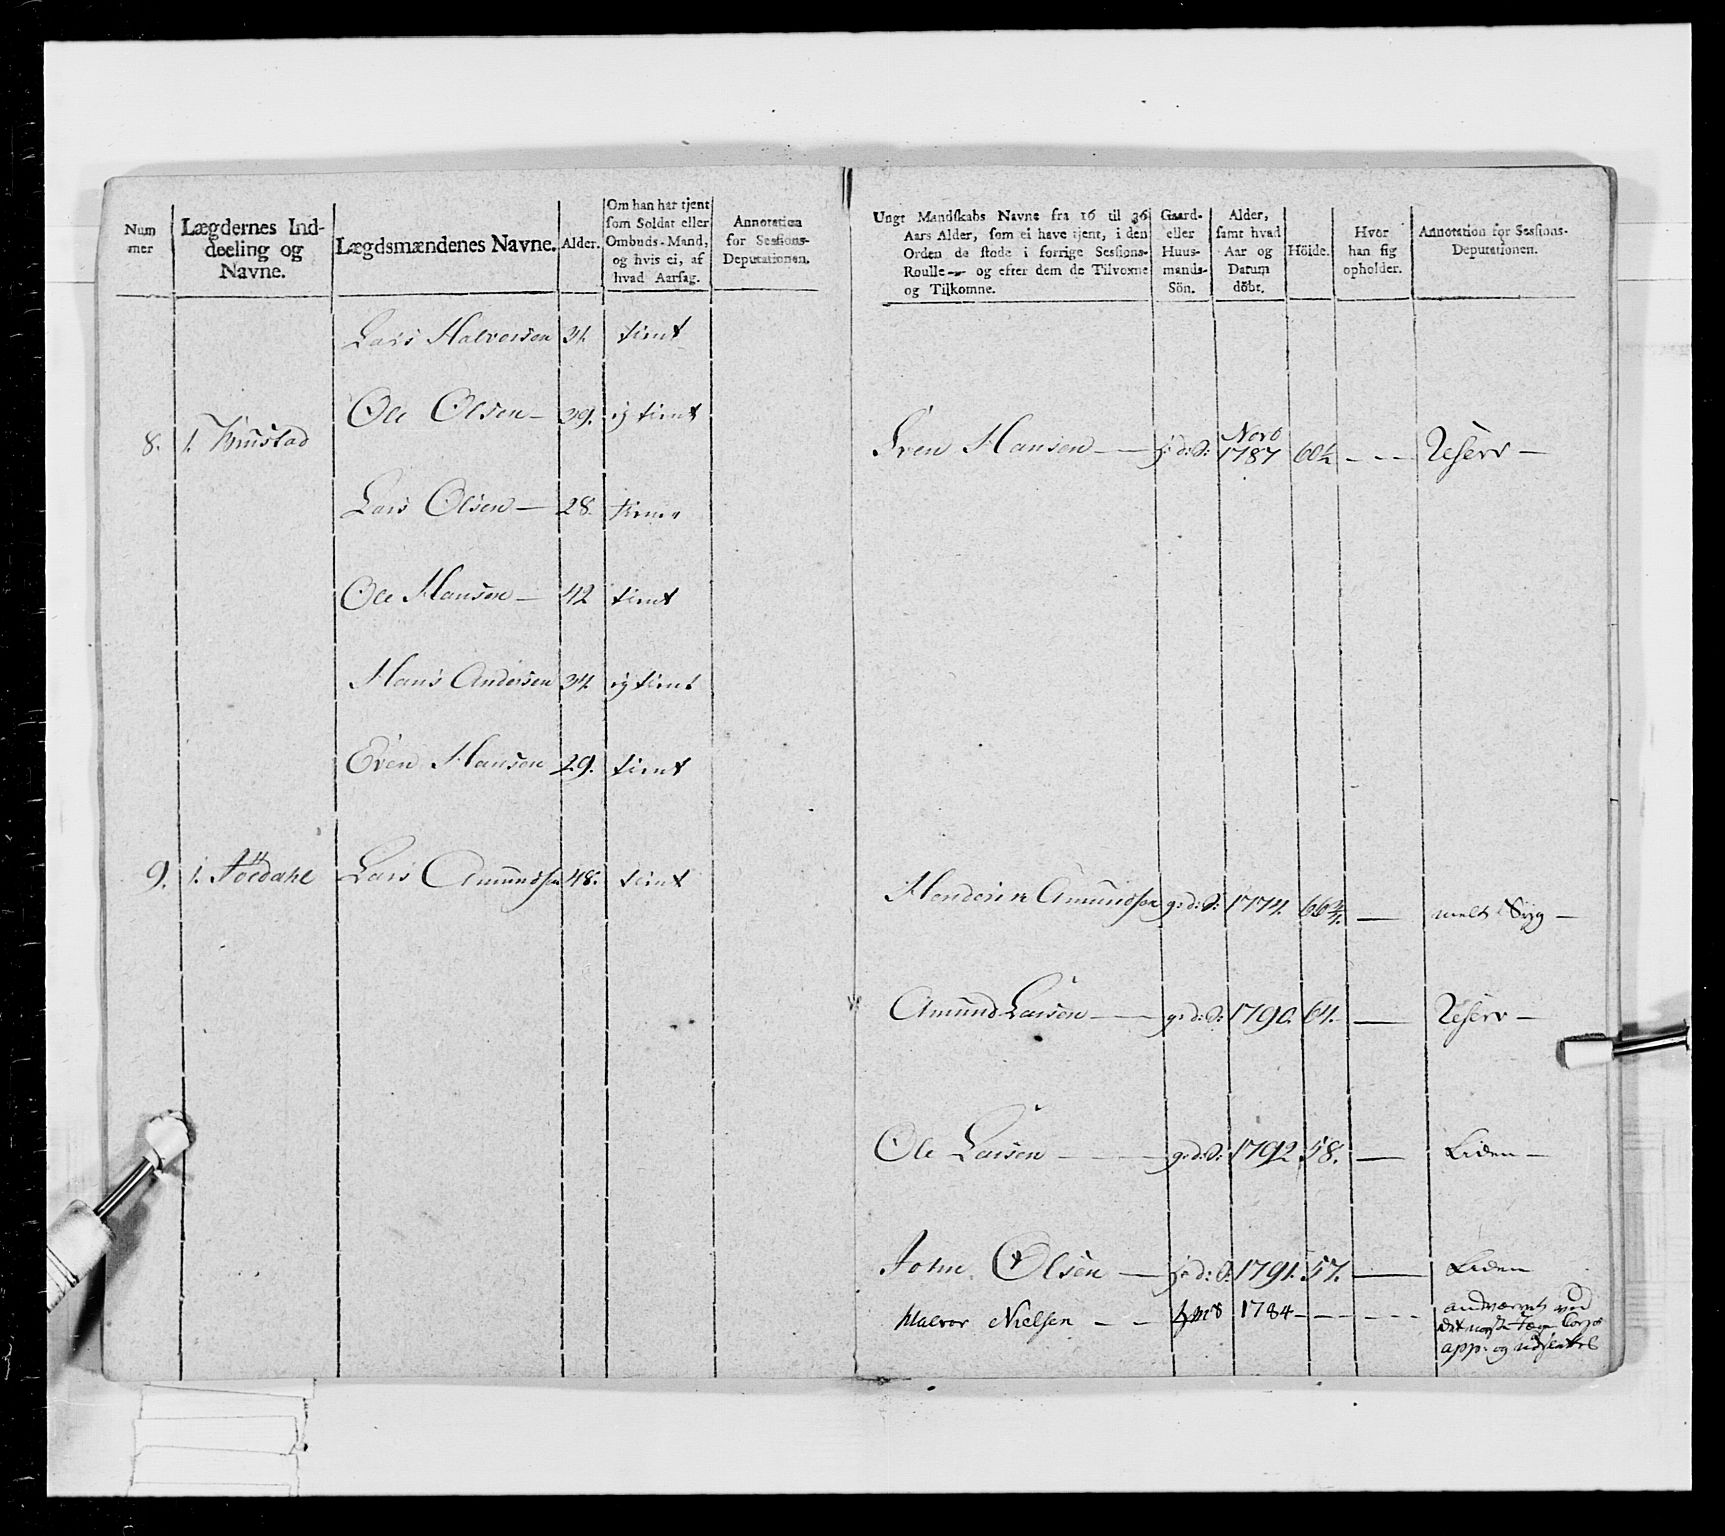 Num
mer
Lægdernes Ind-
deeling og
Navne.
Lægdsmændenes Navne.
Alder.
Om han har tjent
som Soldat eller
Ombuds-Mand,
og hvis ei, af
hvad Aarsag.
Annotation
for Sessions-
Deputationen.
Lars Halvorsen 31. tient
Ole Olsen — 39. ej tient
8. 1. Krustad
Lars Olsen — 28. tient
Ole Hansen — 42 tient
Hans Andersen 34. ej tient
Even Hansen 29. tient
9. 1. Töedahl Lars Amundsen 48. tient
Ungt Mandskabs Navne fra 16 til 36
Aars Alder, som ei have tjent, i den
Orden de stode i forrige Sessions-
Roulle — og efter dem de Tilvoxne
og Tilkomne.
Gaard-
eller
Huus-
mands-
Sön.
Alder,
samt hvad
Aar og
Datum
döbt.
Höide.
Hvor
han sig
opholder.
Annotation for Sessions-
Deputationen.
Even Hansen — 1787 60½ — Reserv —
Amundsen g:d:S: 1774. 66¾. — melt Syg —
Amund Larsen — g:d:S: 1790. 64. — Reserv —
Ole Larsen — g:d:S: 1792 58. — Liden —
John Olsen — 1791. 57. — Liden
Halvor Nielsen — 1784 —
ved
det norske Jæger Corps
app: og udsluttet